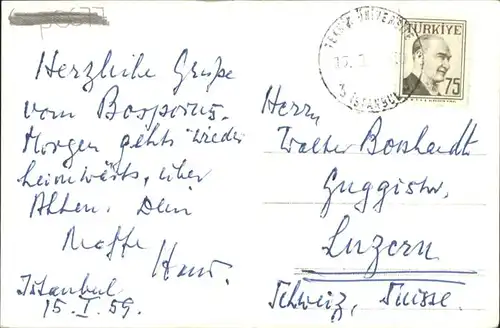 TEKNİK ÜNİVERSİTE
İSTANBUL
TÜRKİYE
75
Herzliche Grüße
vom Bosporus.
Morgen gehts wieder
heimwärts, über
Athen. Dein
Neffe
Hans.
Istanbul
15. I. 59.
Herrn
Walter Borshardt
Guggistr.
Luzern
Schweiz, Suisse.